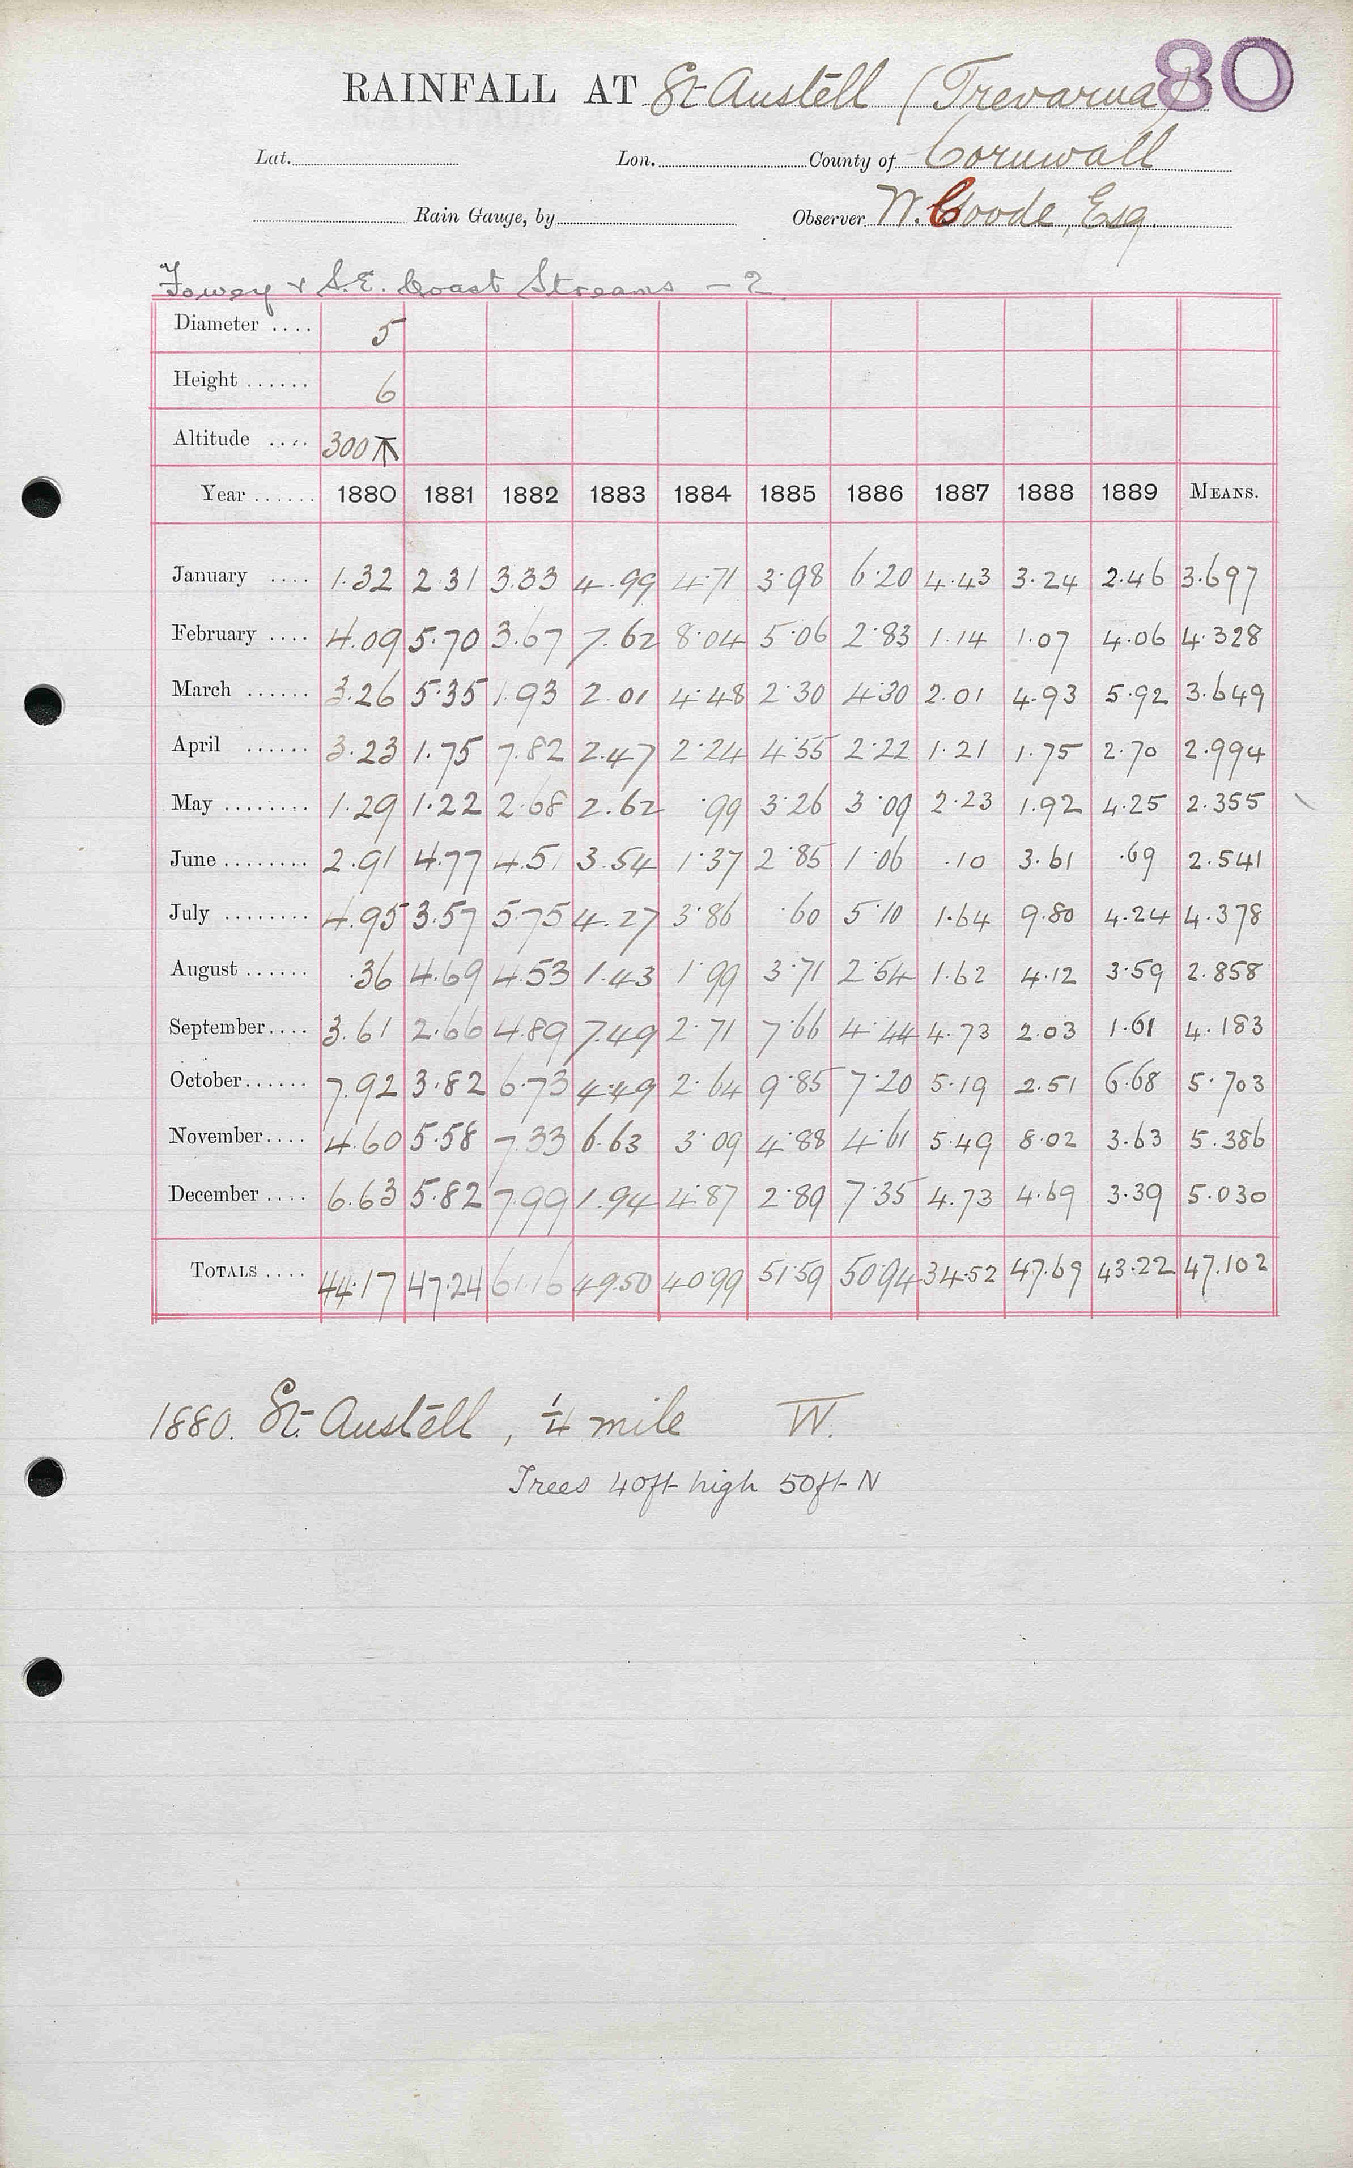 80
RAINFALL AT St Austell (Trevarna)
Lat. Lon. County of Cornwall
Rain Gauge, by Observer W. Coode, Esq
Fowey & S.E. Coast Streams - 2
Diameter .... 5
Height ...... 6
Altitude .... 300 ⚻
Year ...... 1880 1881 1882 1883 1884 1885 1886 1887 1888 1889 MEANS.
January .... 1.32 2.31 3.33 4.99 4.71 3.98 6.20 4.43 3.24 2.46 3.697
February .... 4.09 5.70 3.67 7.62 8.04 5.06 2.83 1.14 1.07 4.06 4.328
March ...... 3.26 5.35 1.93 2.01 4.48 2.30 4.30 2.01 4.93 5.92 3.649
April ...... 3.23 1.75 7.82 2.47 2.24 4.55 2.22 1.21 1.75 2.70 2.994
May ........ 1.29 1.22 2.68 2.62 .99 3.26 3.09 2.23 1.92 4.25 2.355
June ........ 2.91 4.77 4.51 3.54 1.37 2.85 1.06 .10 3.61 .69 2.541
July ........ 4.95 3.57 5.75 4.27 3.86 .60 5.10 1.64 9.80 4.24 4.378
August ...... .36 4.69 4.53 1.43 1.99 3.71 2.54 1.62 4.12 3.59 2.858
September.... 3.61 2.66 4.89 7.49 2.71 7.66 4.44 4.73 2.03 1.61 4.183
October...... 7.92 3.82 6.73 4.49 2.64 9.85 7.20 5.19 2.51 6.68 5.703
November.... 4.60 5.58 7.33 6.63 3.09 4.88 4.61 5.49 8.02 3.63 5.386
December .... 6.63 5.82 7.99 1.94 4.87 2.89 7.35 4.73 4.69 3.39 5.030
TOTALS .... 44.17 47.24 61.16 49.50 40.99 51.59 50.94 34.52 47.69 43.22 47.102
1880. St. Austell, ¼ mile W.
Trees 40ft high 50ft N